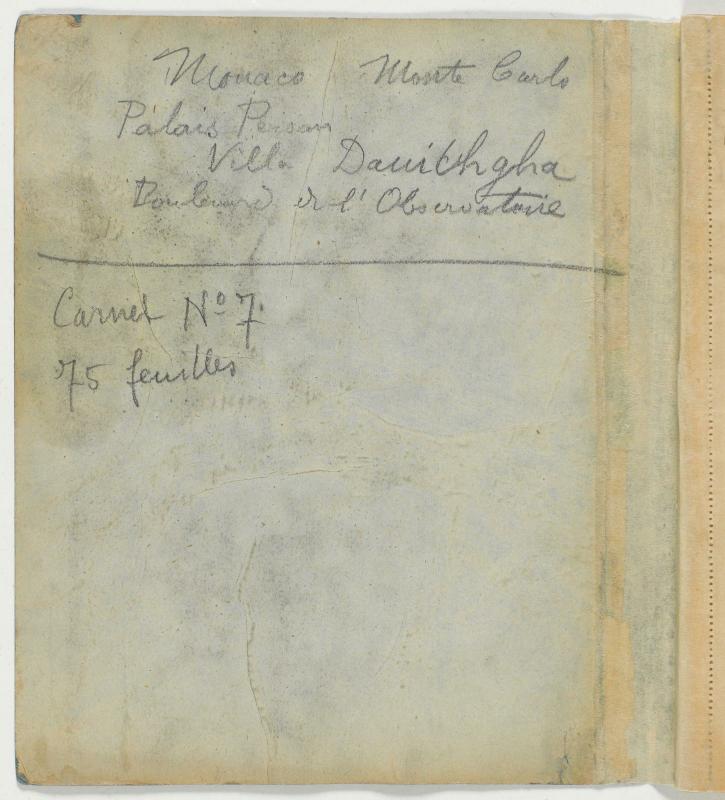 Monaco Monte Carlo
Palais Persan
Villa Danichgha
Boulevard de l'Observatoire
Carnet Nº 7.
75 feuilles